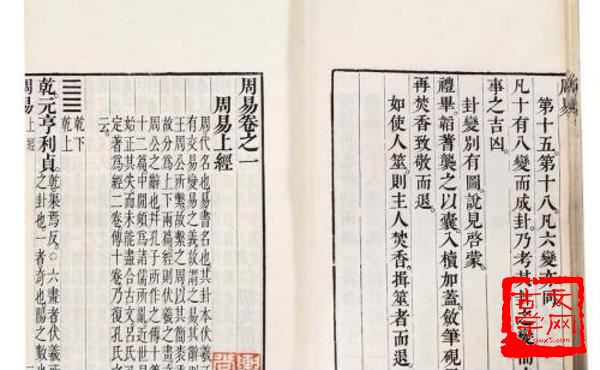 周易
第十五。第十八。凡六變亦同
凡十有八變而成卦。乃考其卦之變。而
事之吉凶。
卦變別有圖。說見啓蒙。
禮畢。韜蓍襲之以囊。入櫝加蓋斂筆硯
再焚香致敬而退。
如使人筮。則主人焚香。揖筮者而退
周易卷之一
周易上經
周代名也易書名也其卦本伏羲
有交易變易之義故謂之易其辭
王周公所繫故繫之周以其簡袠
故分爲上下兩篇經則伏羲之畫
周公之辭也幷孔子所作之傳十
十二篇中閒頗爲諸儒所亂近世
始正其失而未能盡合古文呂氏
定著爲經二卷傳十卷乃復孔氏
云
乾下
乾上
乾元亨利貞。乾渠焉反。○六畫者伏羲
之卦也一者奇也陽之數也
周易 上經
古文学网